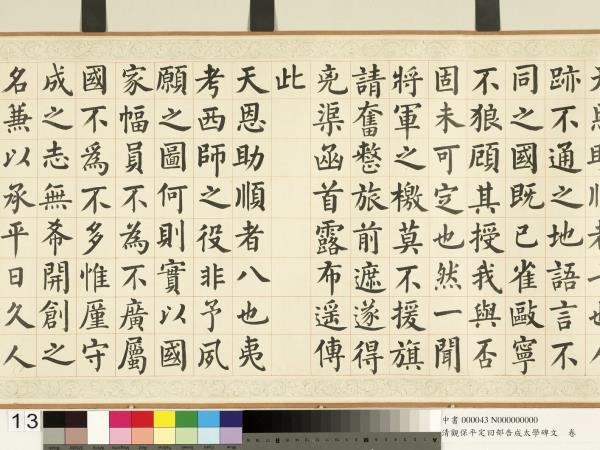 天恩助順者一也人
跡不通之地語言不
同之國既已雀毆寧
不狼顧其授我與否
固未可定也然一聞
將軍之檄莫不援旗
請奮整旅前遮遂得
兇渠函首露布遥傳
此
天恩助順者八也夷
考西師之役非予夙
願之圖何則實以國
家幅員不為不廣屬
國不為不多惟廑守
成之志無希開創之
名兼以承平日久人
13
中書 000043 N000000000
清觀保平定回部告成太學碑文 卷